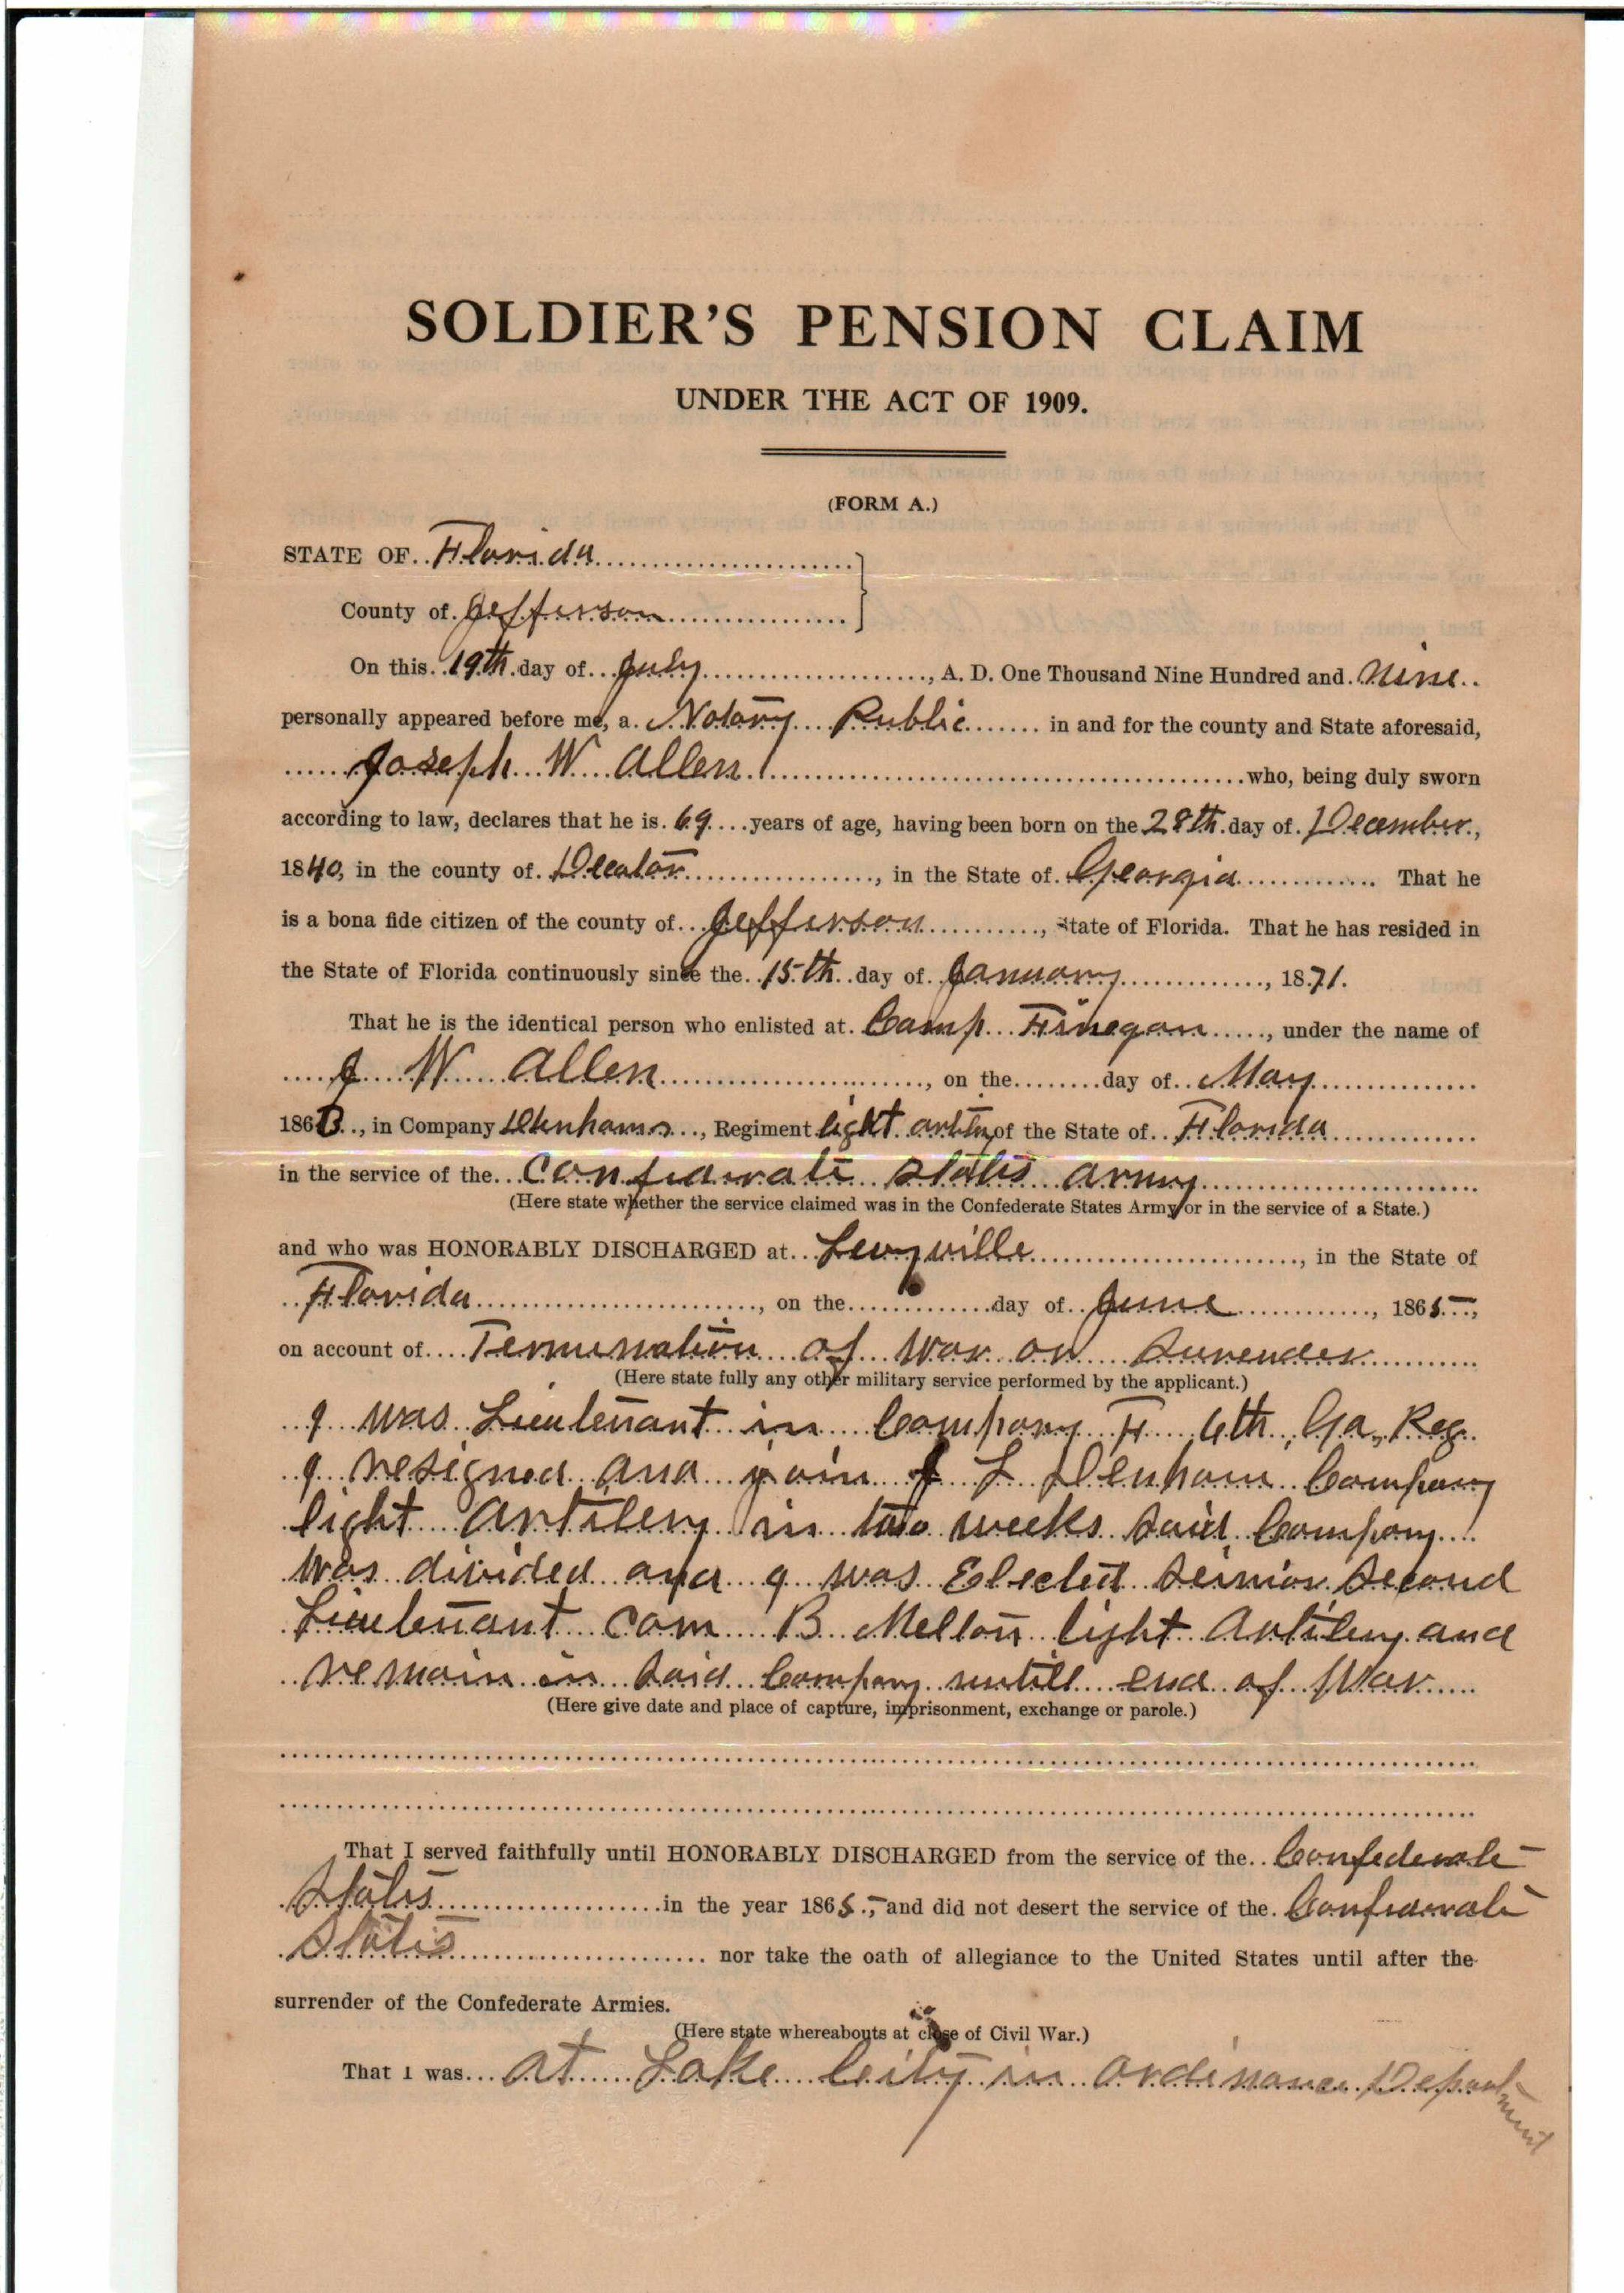 SOLDIER'S PENSION CLAIM
UNDER THE ACT OF 1909.
(FORM A.)
STATE OF Florida
County of Jefferson
On this 19th day of July, A. D. One Thousand Nine Hundred and Nine
personally appeared before me, a Notary Public in and for the county and State aforesaid,
Joseph W Allen who, being duly sworn
according to law, declares that he is 69 years of age, having been born on the 28th day of December,
1840, in the county of Decatur, in the State of Georgia. That he
is a bona fide citizen of the county of Jefferson, State of Florida. That he has resided in
the State of Florida continuously since the 15th day of January, 1871.
That he is the identical person who enlisted at Camp Finegan, under the name of
J W Allen, on the day of May
1863, in Company Denhams, Regiment light of the State of Florida
in the service of the Confederate States army
(Here state whether the service claimed was in the Confederate States Army or in the service of a State.)
and who was HONORABLY DISCHARGED at Levyville, in the State of
Florida, on the day of June, 1865,
on account of Termination of War or Surender
(Here state fully any other military service performed by the applicant.)
I was Lieutenant in Company F 6th, Ga, Reg
I resigned and join J L Denham Company
light Artilery in two weeks said Company
was divided and I was Elected Seinior Second
Lieutenant Com B Melton light Artilery and
remain in said Company untill end of War
(Here give date and place of capture, imprisonment, exchange or parole.)
That I served faithfully until HONORABLY DISCHARGED from the service of the Confederate
States in the year 1865, and did not desert the service of the Confederate
States nor take the oath of allegiance to the United States until after the
surrender of the Confederate Armies.
(Here state whereabouts at close of Civil War.)
That I was at Lake City in ordinance Department